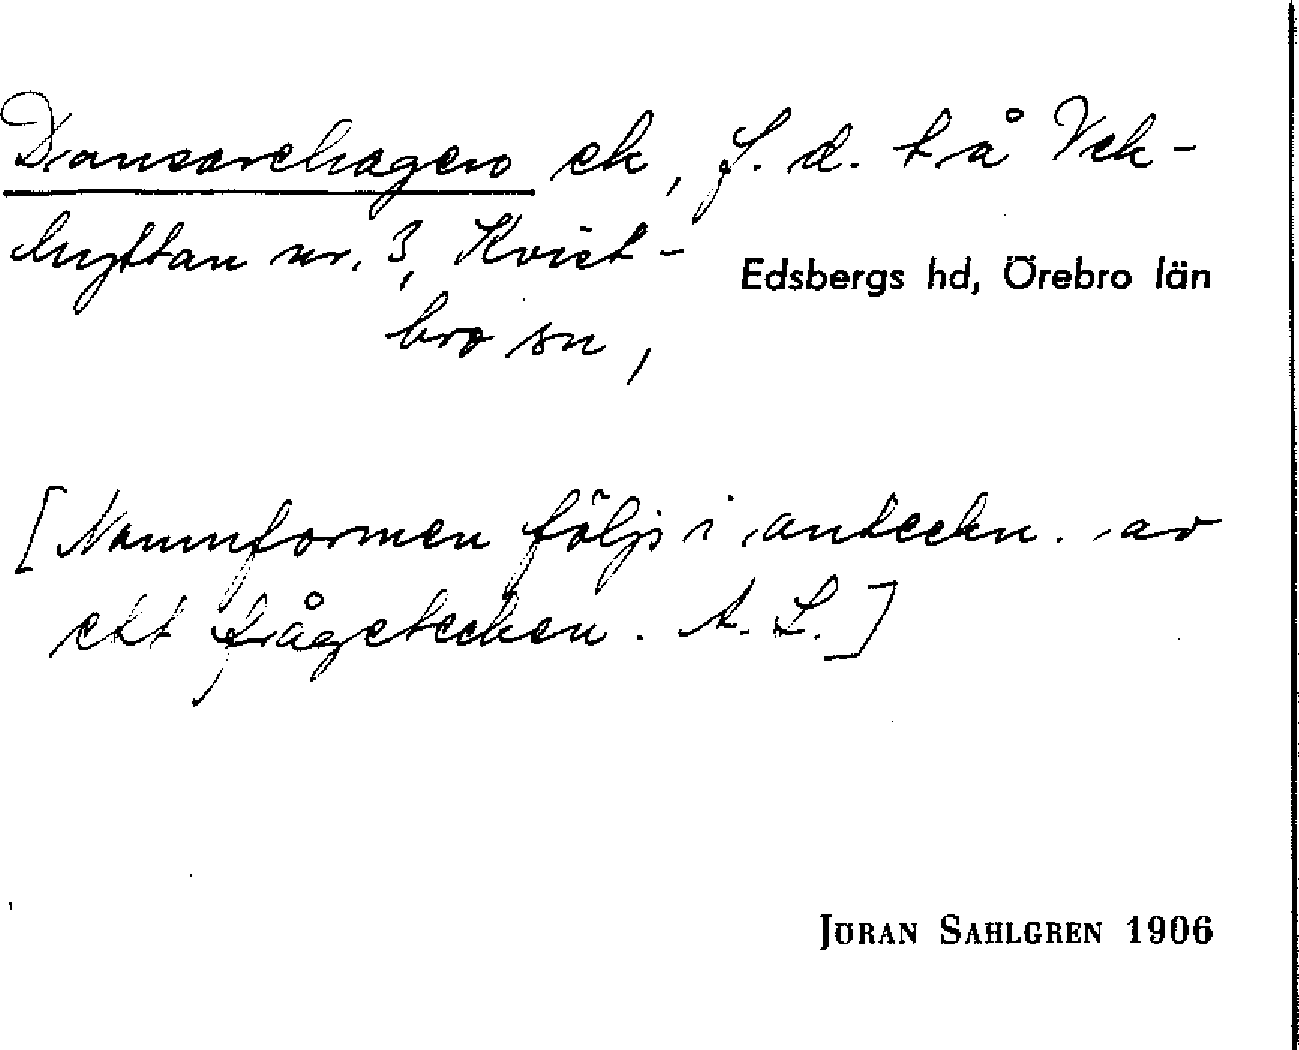 Dansarehagen ek, f. d. t å Vek-
hyttan nr. 3, Kvist-
Edsbergs hd, Örebro län
bro sn,
[Namnformen följs i anteckn. av
ett frågetecken. A. L.]
JÖRAN SAHLGREN 1906